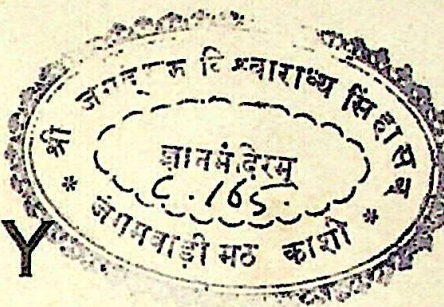 श्री जगद्गुरु विश्वाराध्य सिंहासन
ज्ञानमंदिरम्
C.165.
* जंगमवाड़ी मठ काशी *
Y